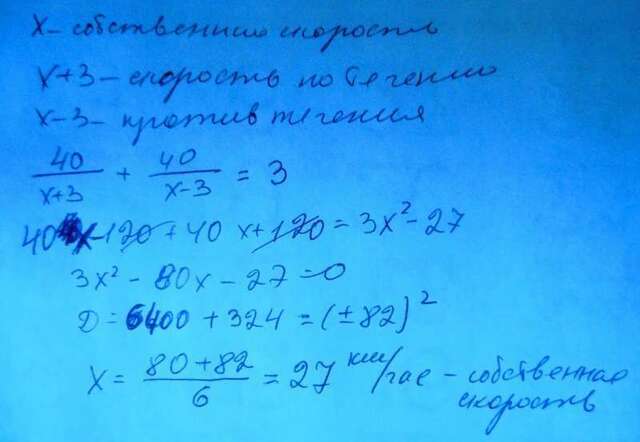 X – собственная скорость
X+3 – скорость по течению
X-3 – против течения
40/(x+3) + 40/(x-3) = 3
40x-120+40x+120=3x²-27
3x²-80x-27=0
D=6400+324=(±82)²
X= (80+82)/6 = 27 км/час – собственная
скорость